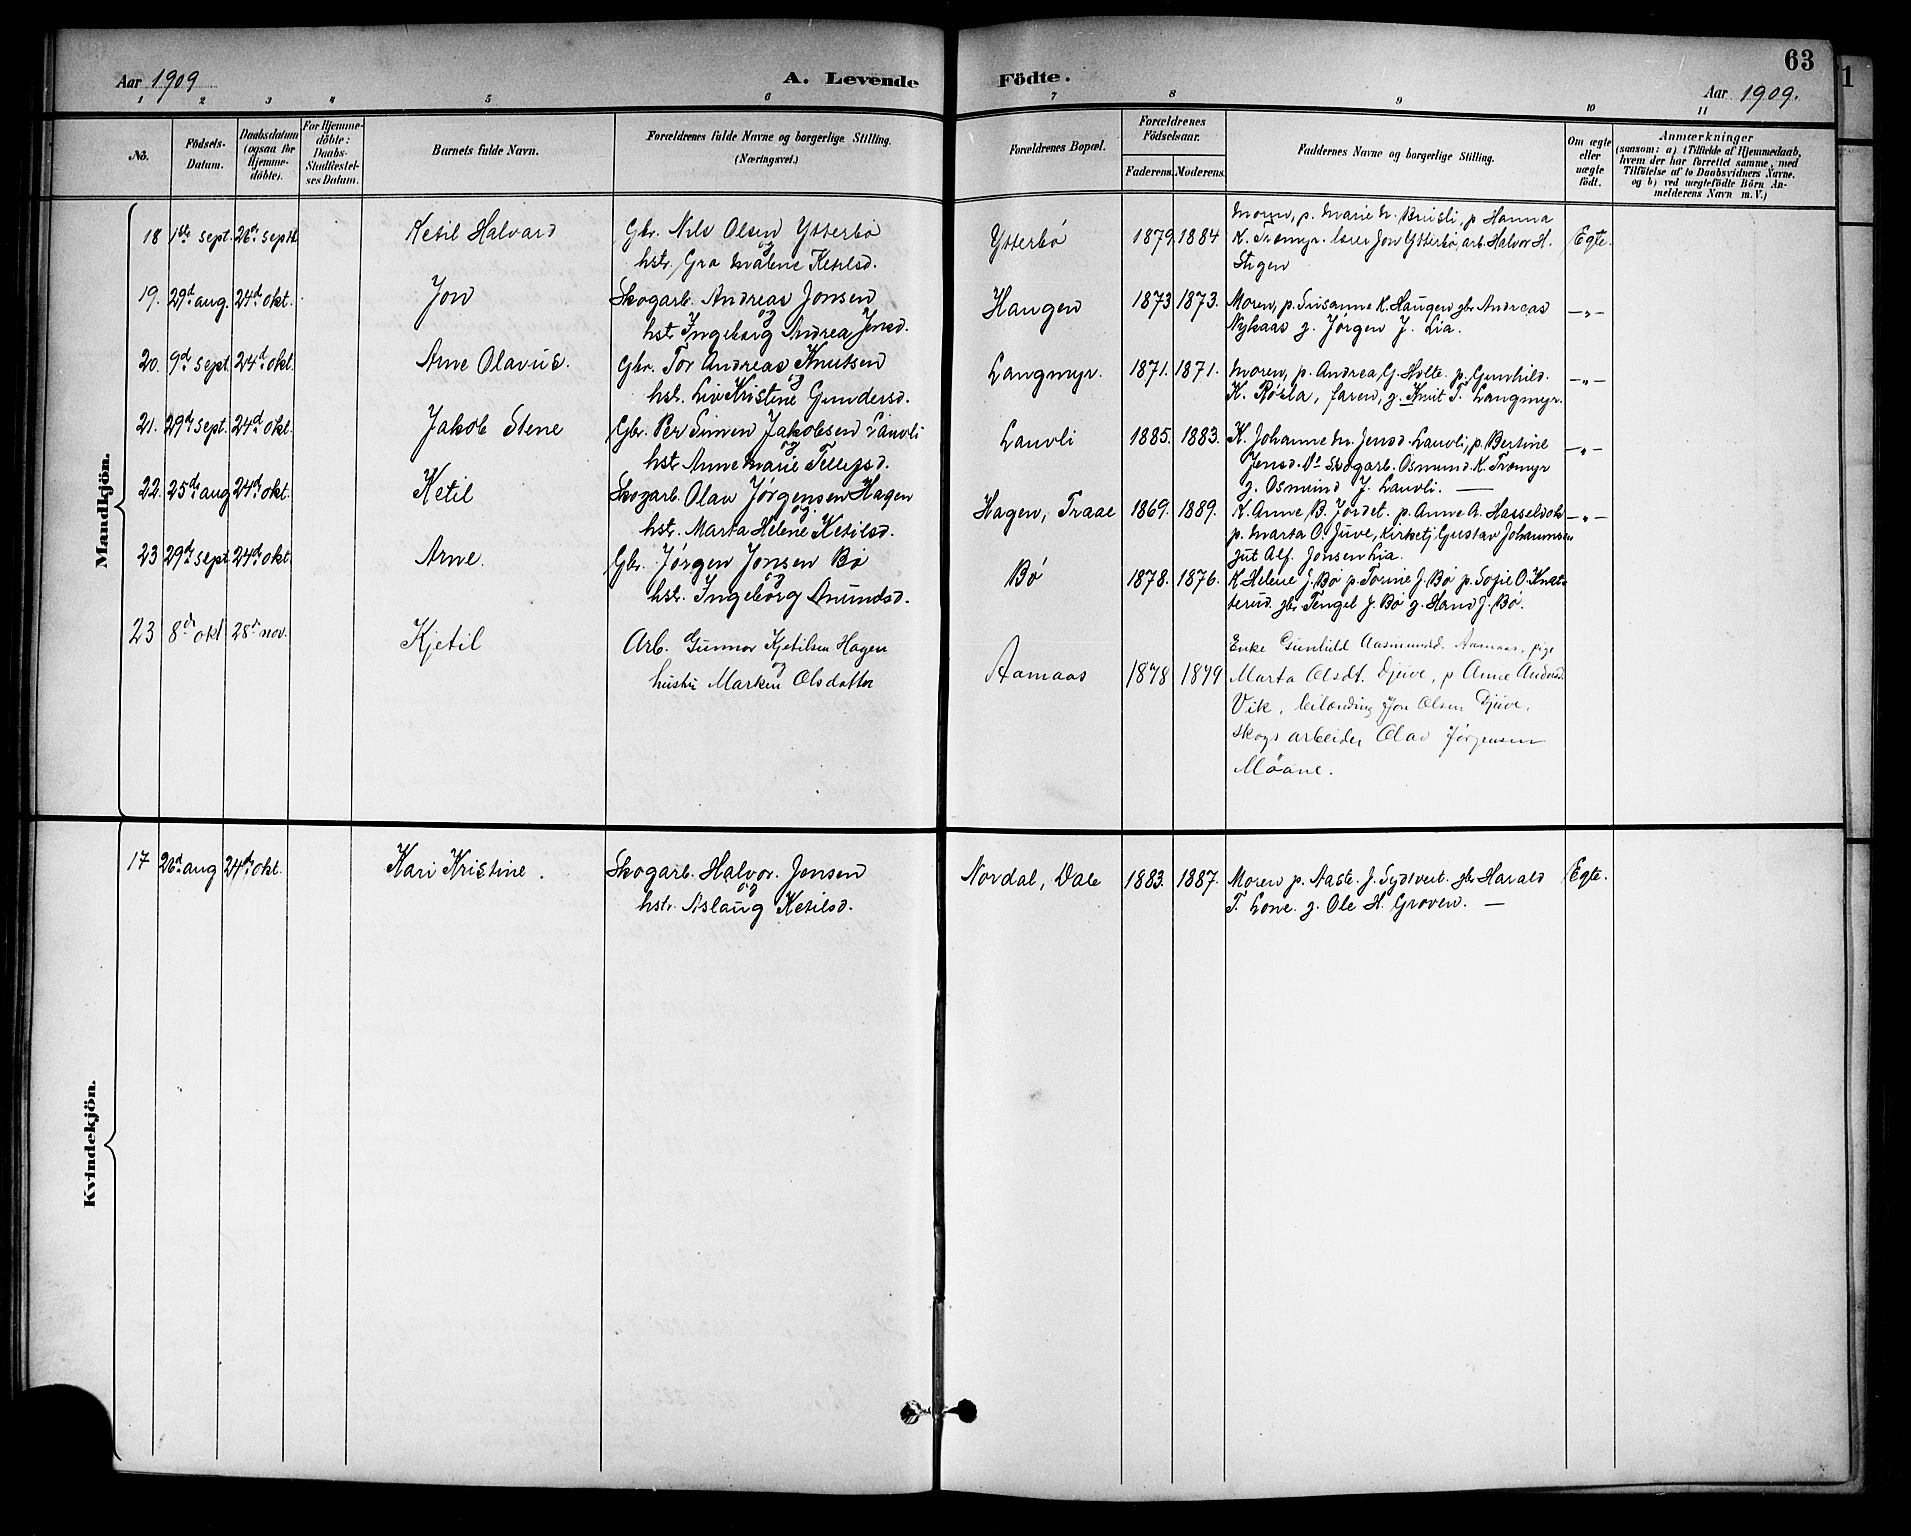 63
1
Aar 1909
A. Levende
Födte.
Aar 1909.
1 2 3 4 5 6 7 8 9 10 11
No.
Födsels-
Datum.
Daabsdatum
(ogsaa for
Hjemme-
döbte).
For Hjemme-
döbte:
Daabs-
Stadfæstel-
ses Datum.
Barnets fulde Navn.
Forældrenes fulde Navne og borgerlige Stilling.
(Næringsvei.)
Forældrenes Bopæl.
Forældrenes
Födselsaar.
Faderens. Moderens.
Faddernes Navne og borgerlige Stilling.
Om ægte
eller
uægte
födt.
Anmærkninger
(saasom: a) i Tilfælde af Hjemmedaab,
hvem der har forrettet samme, med
Tilföielse af to Daabsvidners Navne.
og b) ved uægtefödte Börn An-
melderens Navn m. V.)
Mandkjön.
18 1ste sept. 26de septb. Ketil Halvard Gbr. Nils Olsen Ytterbø
og
hstr. Gro Malene Ketilsd.
Ytterbø 1879 1884 Moren, p. Marie N. Bruisli, p Hanna
K. Tromyr. lærer Jon Ytterbø, arb. Halvor H.
Stigen
Egte.
19. 29d aug. 24d okt. Jon Skogarb. Andreas Jonsen
og
hst Ingeborg Andrea Jensd.
Haugen 1873 1873. Moren, p. Susanne K. Haugen gbr Andreas
Nykaas g. Jørgen J. Lia.
— „ —
20. 9d sept. 24d okt. Arne Olavus. Gbr. Tor Andreas Knutsen
og
hst. Liv Kristine Gundersd.
Langmyr. 1871. 1871. Moren, p. Andrea G. Holte. p. Gunhild.
K. Røsla, faren, g. Knut T. Langmyr.
— „ —
21. 29de sept. 24d okt. Jakob Stene Gbr. Per Simen Jakobsen Lauvli
og
hst. Anne Marie Tellefsd.
Lauvli 1885. 1883. K. Johanne M. Jensd. Lauvli, p. Bertine
Jensd. Ds Skogarb. Osmund K. Tromyr
g. Osmund J. Lauvli. —
— „ —
22. 25de aug 24d okt. Ketil Skogarb. Olav Jørgensen Hagen
og
hst. Marta Helene Ketilsd.
Hagen, Traae 1869. 1889. K. Anne B. Jordet. p. Anne A. Hasseldok
p. Marta O. Juve, Kirketj Gustav Johannsen
gut Alf. Jonsen Lia.
— „ —
23 29de sept 24d okt. Arne. Gbr. Jørgen Jonsen Bø
og
hst. Ingeborg Anundsd.
Bø 1878. 1876. K Helene J. Bø p Torine J. Bø p. Sofie O. Knat-
terud. gbr. Tengel J. Bø g. Hans J. Bø.
23 8de okt 28d nov. Kjetil Arb. Gunnar Kjetilsen Hagen
og
hustru Marken Olsdatter
Aamaas 1878 1879 Enke Gunhild Aasmundsd. Aamaas, pige
Marta Olsdt. Djuve, p Anne Andersd.
Vik, leilænding Jon Olsen Djuve,
skogsarbeider Olav Jørgensen
Møane.
Kvindekjön.
17 26d aug 24d okt. Kari Kristine. Skogarb. Halvor. Jensen
og
hst. Aslaug Ketilsd.
Nordal, Dale 1883. 1887. Moren p. Aaste. J. Sydtveit. gbr Harald
T. Lone. g. Ole H. Groven. —
Egte.